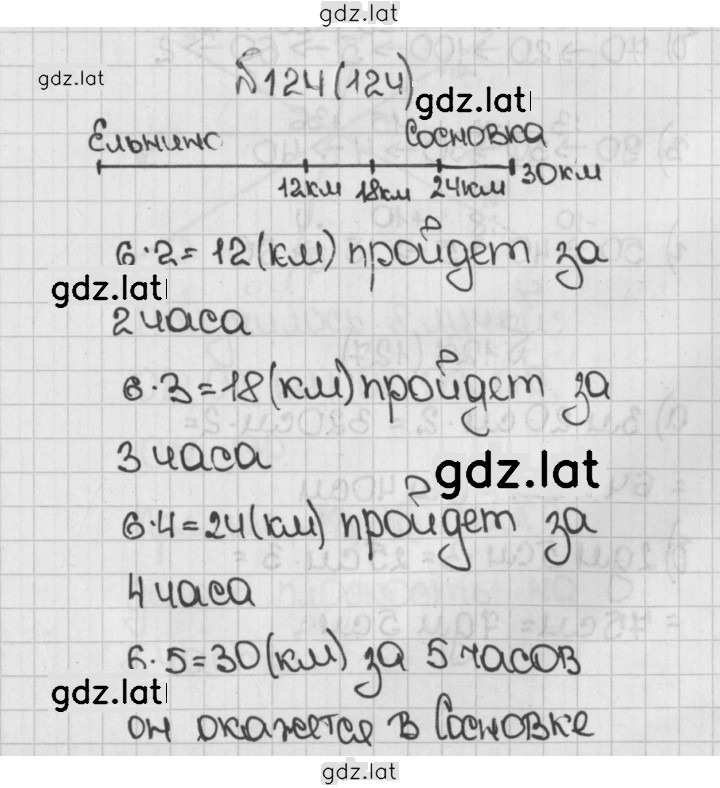 gdz.lat
gdz.lat
№124(124)
gdz.lat
Ельнинс Сосновка
12км 18км 24км 30км
6·2=12(км) пройдет за
gdz.lat
2 часа
6·3=18(км) пройдет за
3 часа
gdz.lat
6·4=24(км) пройдет за
4 часа
6·5=30(км) за 5 часов
gdz.lat
он окажется в Сосновке
gdz.lat